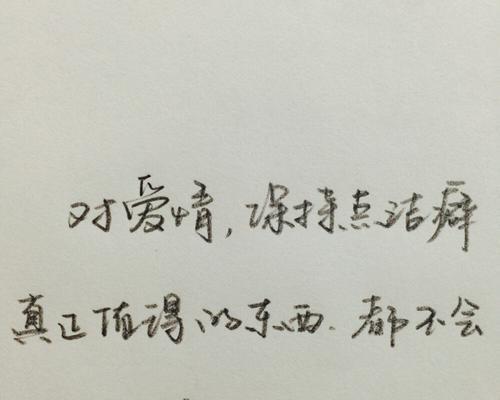 对爱情,保持点洁癖
真正值得的东西.都不会